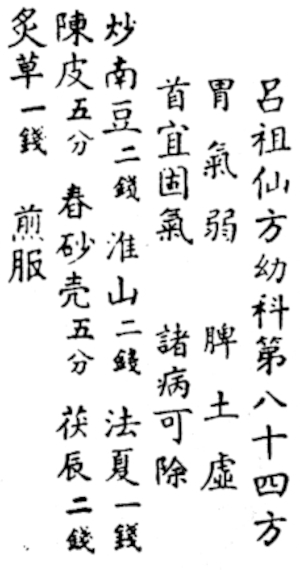 呂祖仙方幼科第八十四方
胃氣弱 脾土虛
首宜固氣 諸病可除
炒南豆二錢 淮山二錢 法夏一錢
陳皮五分 春砂壳五分 茯辰二錢
炙草一錢 煎服